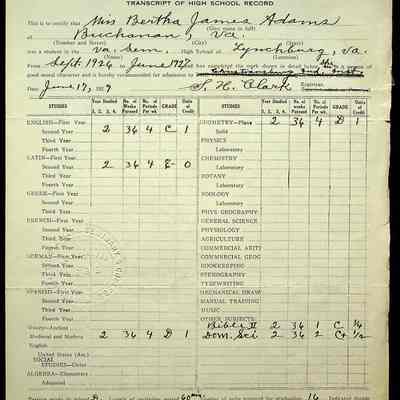 TRANSCRIPT OF HIGH SCHOOL RECORD
This is to certify that Miss Bertha James Adams
(Given name in full)
of Buchanan, Va.
(Number and Street) (City) (State)
was a student in the Va. Sem. High School at Lynchburg, Va.
From Sept. 1926 to June 1927
good moral character and is hereby recommended for admission to
June 17, 1927 S. H. Clark
STUDIES Year Studied 1, 2, 3, 4. No. of Weeks Pursued No. of Periods Per wk. GRADE Units of Credit STUDIES Year Studied 1, 2, 3, 4. No. of Weeks Pursued No. of Periods Per wk. GRADE Units of Credit
ENGLISH—First Year GEOMETRY—Plane 2 36 4 D 1
Second Year 2 36 4 C 1 Solid
Third Year PHYSICS
Fourth Year Laboratory
LATIN—First Year CHEMISTRY
Second Year 2 36 4 E 0 Laboratory
Third Year BOTANY
Fourth Year Laboratory
GREEK—First Year ZOOLOGY
Second Year Laboratory
Third Year PHYS. GEOGRAPHY
FRENCH—First Year GENERAL SCIENCE
Second Year PHYSIOLOGY
Third Year AGRICULTURE
Fourth Year COMMERCIAL ARITH
GERMAN—First Year COMMERCIAL GEOG
Second Year BOOKKEEPING
Third Year STENOGRAPHY
Fourth Year TYPEWRITING
SPANISH—First Year MECHANICAL DRAW
Second Year MANUAL TRAINING
Third Year MUSIC
Fourth Year OTHER SUBJECTS:
History—Ancient Bible II 2 36 1 C 1/4
Medieval and Modern 2 36 4 D 1 Dom. Sci 2 36 2 C+ 1/2
English
United States (Am.)
SOCIAL
STUDIES—Other
ALGEBRA—Elementary
Advanced